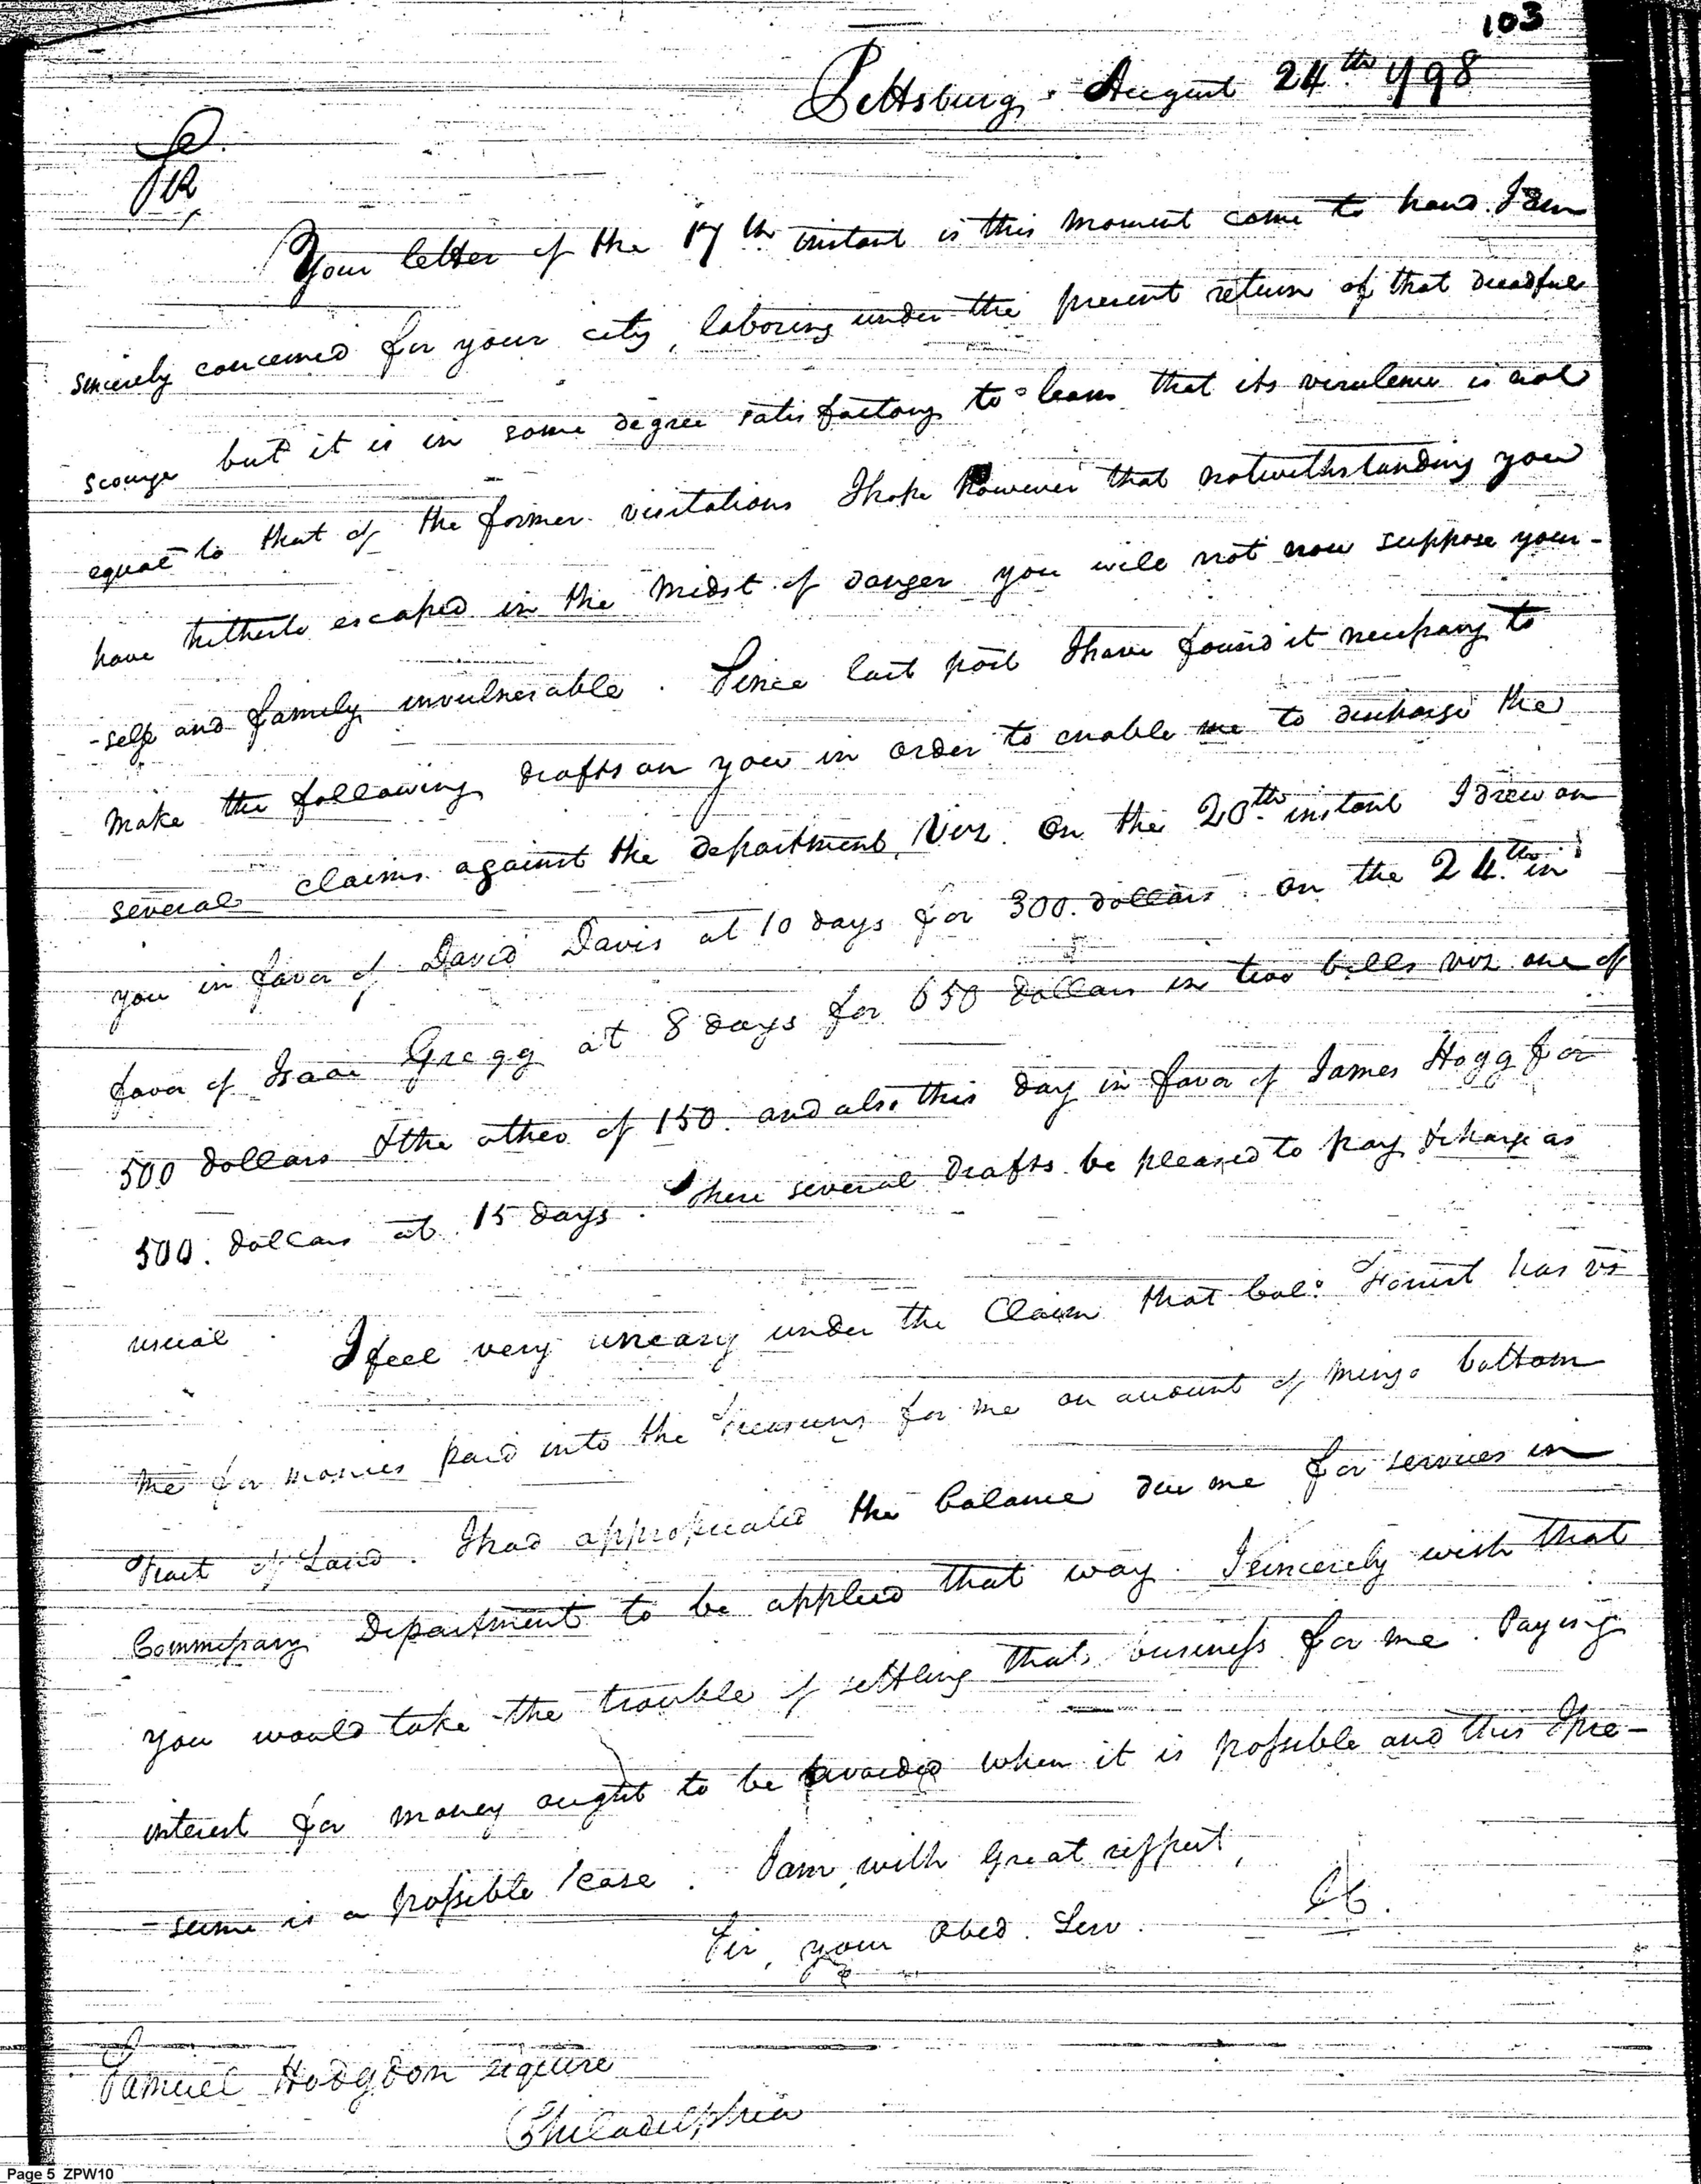 103
Pittsburg, August 24th. 1798
Sir,
Your letter of the 17th instant is this moment come to hand. I am
sincerely concerned for your city, laboring under the present return of that dreadful
scourge but it is in some degree satisfactory to learn that its virulence is not
equal to that of the former visitations I hope however that notwithstanding you
have hitherto escaped in the midst of danger you will not now suppose your-
-self and family invulnerable. Since last post I have found it necessary to
make the following drafts on you in order to enable me to discharge the
several claims against the department, Viz. On the 20th. instant I drew on
you in favor of David Davis at 10 days for 300. dollars. on the 24th. in
favor of Isaac Gregg at 8 days for 650 dollars in two bills viz one of
500 dollars & the other of 150. and also this day in favor of James Hogg for
500. dollars at 15 days. These several drafts be pleased to pay & charge as
usual.
I feel very uneasy under the Claim that Col: Forrest has vs
me for monies paid into the Treasury for me on account of Mingo bottom
Tract of Land. I had appropriated the balance due me for services in
Commissary Department to be applied that way. I sincerely wish that
you would take the trouble of settling that business for me. Paying
interest for money ought to be avoided when it is possible and this I pre-
-sume is a possible case. I am, with great respect,
Sir, your obed. Serv. IC.
Samuel Hodgdon esquire
Philadelphia
Page 5 ZPW10